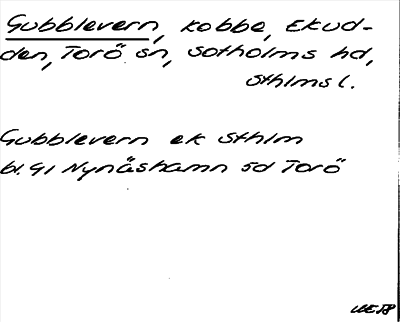 Gubblevern, kobbe, Ekud-
den, Torö sn, Sotholms hd,
Sthlms l.
Gubblevern ek Sthlm
bl. 91 Nynäshamn 5d Torö